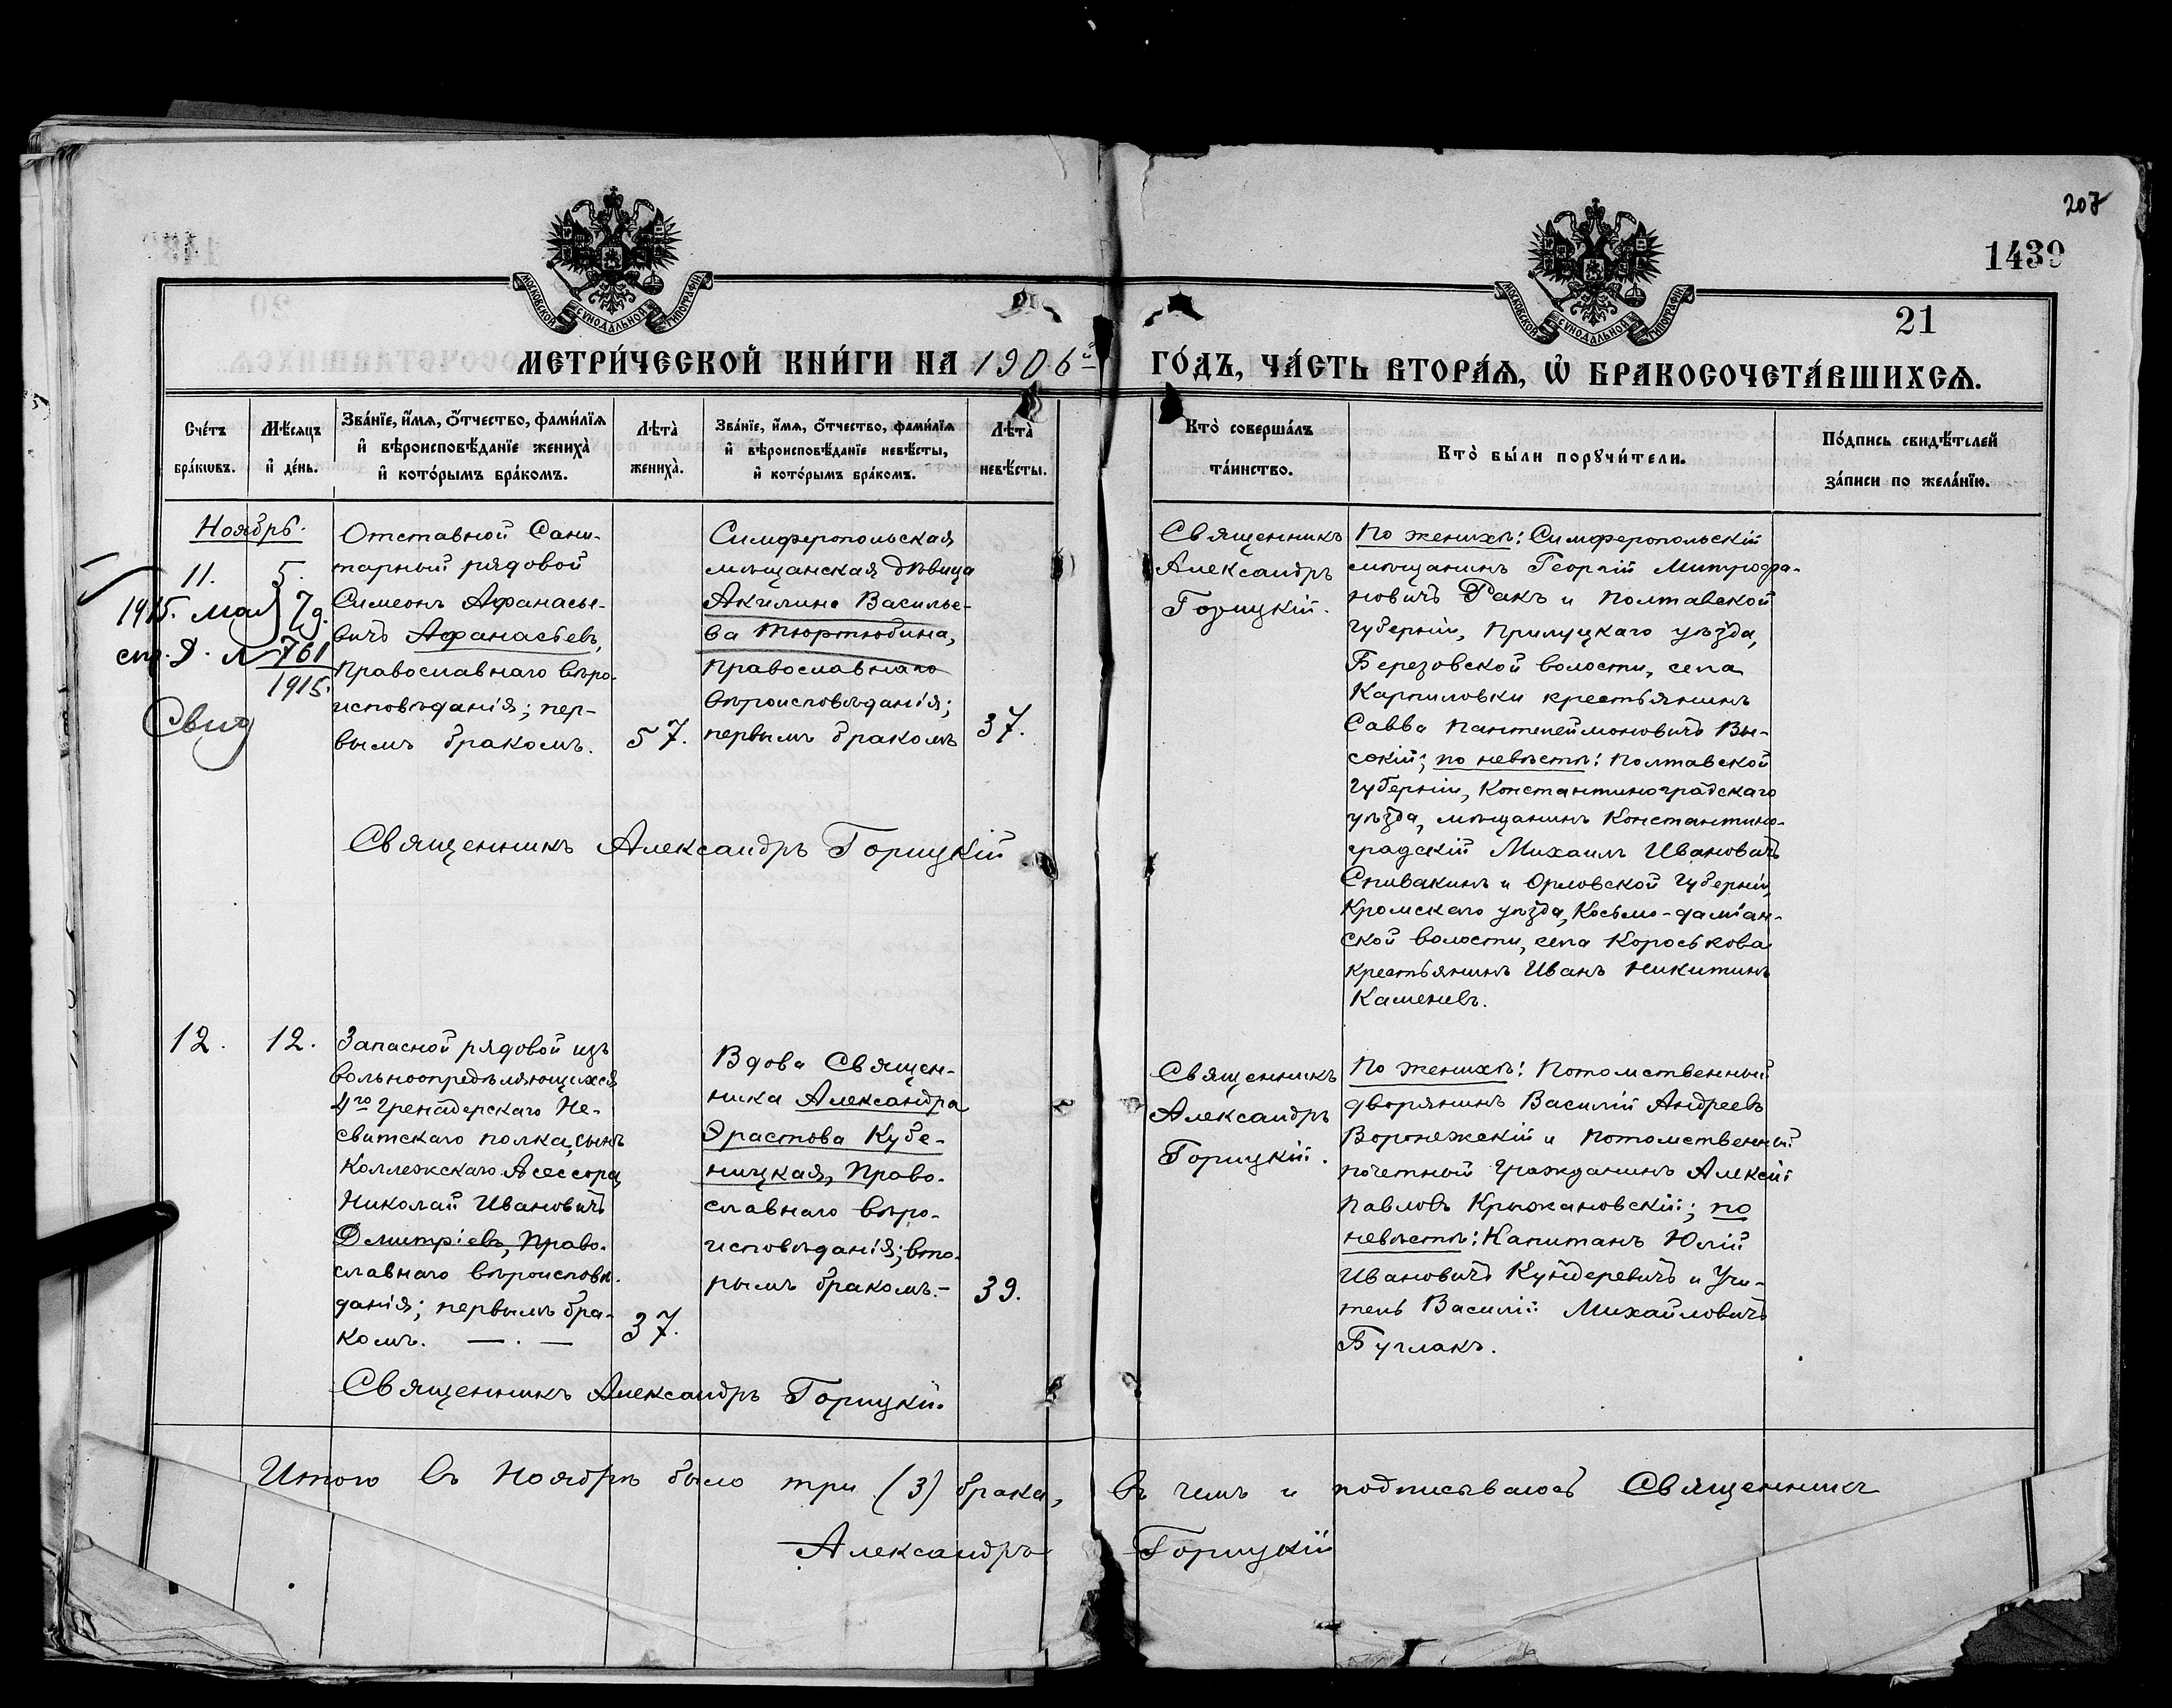 207
1439
21
МОСКОВСКОЙ СУНОДАЛЬНОЙ ТИПОГРАФІИ
МОСКОВСКОЙ СУНОДАЛЬНОЙ ТИПОГРАФІИ
МЕТРИ́ЧЕСКОЙ КНИ́ГИ НА 1906й ГО́ДЪ, ЧА́СТЬ ВТОРА́Ѧ, Ѽ БРАКОСОЧЕТА́ВШИХСѦ.
Сче́тъ
бра́кѡвъ.
Мѣ́сѧцъ
и҆ де́нь.
Зва́нїе, и҆́мѧ, ѻ҆́тчество, фами́лїѧ
и҆ вѣроисповѣ́данїе жениха̀
и҆ кото́рымъ бра́комъ.
Лѣта̀
жениха̀.
Зва́нїе, и҆́мѧ, ѻ҆́тчество, фами́лїѧ
и҆ вѣроисповѣ́данїе невѣ́сты,
и҆ кото́рымъ бра́комъ.
Лѣта̀
невѣ́сты.
Кто̀ соверша́лъ
та́инство.
Кто̀ бы́ли порꙋчи́тели.
По́дпись свидѣ́телей
за́писи по жела́нїю.
Ноябрь.
11.
5.
1915. мая 7 д.
спр. Д. № 761
1915.
Свид
Отставной Сани-
тарный рядовой
Симеонъ Афанасье-
вичъ Афанасьевъ,
Православнаго вѣро-
исповѣданія; пер-
вымъ бракомъ.
57.
Симферопольская
мѣщанская дѣвица
Акилина Василье-
ва Тюртюбина,
Православнаго
вѣроисповѣданія;
первымъ бракомъ
37.
Священникъ
Александръ
Горицкій.
По женихѣ: Симферопольскій
мѣщанинъ Георгій Митрофа-
новичъ Ракъ и Полтавской
губерніи, Прилуцкаго уѣзда,
Березовской волости, села
Карпиловки крестьянинъ
Савва Пантелеймоновичъ Вы-
сокій; по невѣстѣ: Полтавской
губерніи, Константиноградскаго
уѣзда, мѣщанинъ Константино-
градскій Михаилъ Ивановичъ
Спивакинъ и Орловской губерніи,
Кромскаго уѣзда, Косьмо-даміан-
ской волости, села Короськова
крестьянинъ Иванъ Никитинъ
Каменевъ.
Священникъ Александръ Горицкій
12.
12.
Запасной рядовой изъ
вольноопредѣляющихся
4го Гренадерскаго Не-
свитскаго полка, сынъ
Коллежскаго Асессора
Николай Ивановичъ
Дмитріевъ, Право-
славнаго вѣроисповѣ-
данія; первымъ бра-
комъ. — . —
37.
Вдова Священ-
ника Александра
Эрастова Кубе-
ницкая, Право-
славнаго вѣро-
исповѣданія; вто-
рымъ бракомъ.-
39.
Священникъ
Александръ
Горицкій.
По женихѣ: Потомственный
дворянинъ Василій Андреевъ
Воронежскій и Потомственный
почетный гражданинъ Алексѣй
Павловъ Крыжановскій; по
невѣстѣ: Капитанъ Юлій
Ивановичъ Кундеревичъ и Учи-
тель Василій Михайловичъ
Буглакъ.
Священникъ Александръ Горицкій.
Итого въ Ноябрѣ было три (3) брака, въ чемъ и подписываюсь Священникъ
Александръ Горицкій